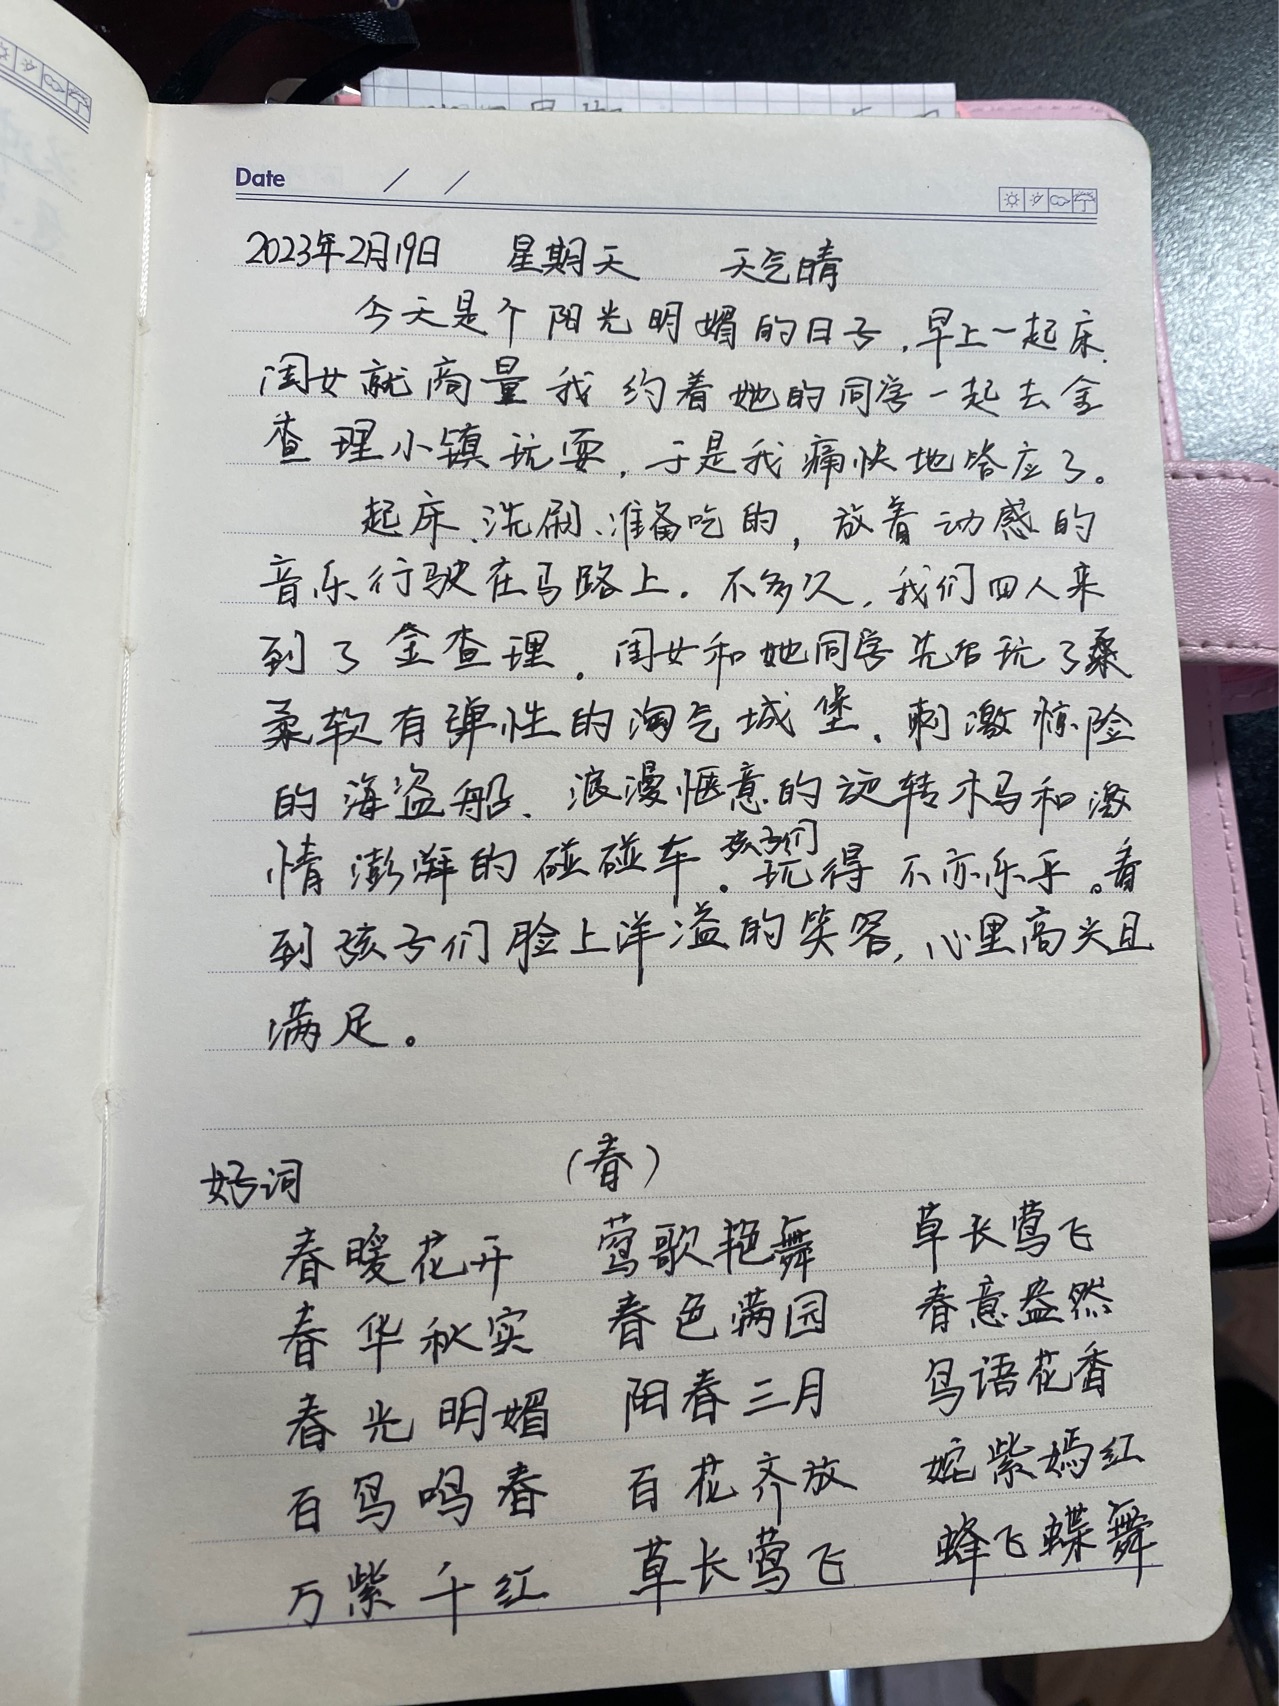 Date / /
2023年2月19日 星期天 天气晴
今天是个阳光明媚的日子,早上一起床,
闺女就商量我约着她的同学一起去金
查理小镇玩耍,于是我痛快地答应了。
起床、洗刷、准备吃的,放着动感的
音乐行驶在马路上。不多久,我们四人来
到了金查理。闺女和她同学先后玩了
柔软有弹性的淘气城堡、刺激惊险
的海盗船、浪漫惬意的旋转木马和激
情澎湃的碰碰车。孩子们玩得不亦乐乎。看
到孩子们脸上洋溢的笑容,心里高兴且
满足。
好词 (春)
春暖花开 莺歌艳舞 草长莺飞
春华秋实 春色满园 春意盎然
春光明媚 阳春三月 鸟语花香
百鸟鸣春 百花齐放 姹紫嫣红
万紫千红 草长莺飞 蜂飞蝶舞